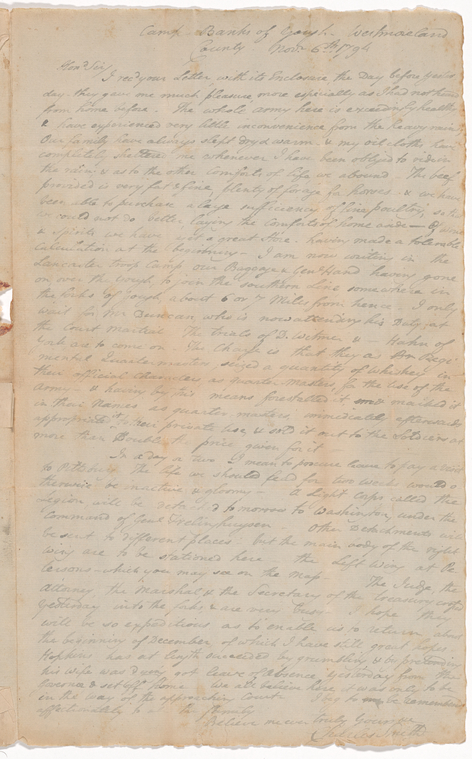 Camp Banks of Westmoreland
County Novr 6th 1794
Hond Sir
I recd your Letter with its Enclosure the day before yester
day. they gave me much pleasure more especially as I had not heard
from home before. The whole army here is exceedingly healthy
& have experienced very little inconvenience from the heavy rains
Our family have always slept dry & warm & my oil-cloths have
completely me whenever I have been obliged to ride in
the rain & as to the other Comforts of life we abound. The beef
provided is very fat & fine, plenty of forage for horses & we have
been able to purchase a large sufficiency of fine poultry, so that
we could not do better, laying the comforts of home aside
& spirits we have still a great Store having made a tolerable
Calculation at the beginning. I am now writing in the
Lancaster troop Camp our Baggage & Genl Hand having gone
on over the to join the southern line somewhere in
the forks of Yough, about 6 or 7 Miles from hence. I only
wait for Mr Duncan who is now attending his Duty at
the Court Martial The trials of & Hahn of
York are to come on The Charge is that they as
mental Quartermasters seized a quantity of whiskey in
their official characters as quarter masters for the use of the
Army & having by this means forestalled it marked it
in their Names as quarter masters, immediately afterwards
appropriated it to their private use & sold it out to the soldiers at
more than double the price given for it
In a day or two I mean to procure leave to pay a visit
to Pittsburg The life we should lead for two weeks would
otherwise be inactive & gloomy A light Corps called the
Legion will be to morrow to Washington under the
Command of Genl Other detachments will
be sent to different places but the main body of the right
wing are to be stationed here the left wing at
which you may see on the map. The Judge, the
Attorney, the Marshal & the Secretary of the treasury
yesterday into the forks & are very busy I hope they
will be so expeditious as to enable us to return about
the beginning of December, of which I have still great hopes.
Hopkins has at length succeeded by grumbling & by pretending
his wife was got leave of absence yesterday from the
Governor & set off home We all believe here it was only to be
in the way of the approaching Court to be remembered
affectionately to the family
Believe me yours truly
Smith